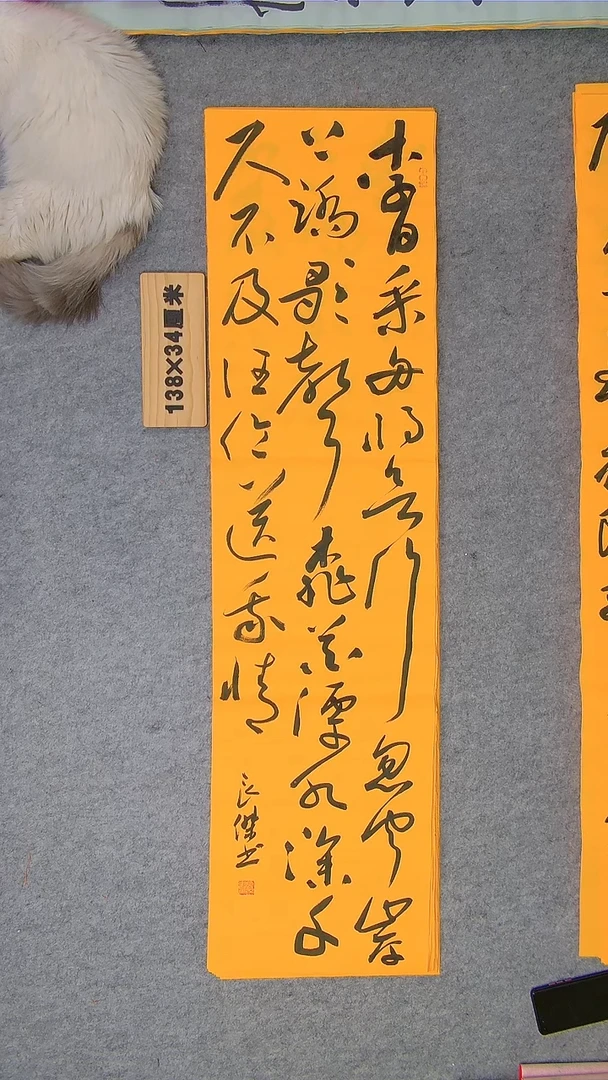 李白乘舟将欲行忽闻岸
上踏歌聲桃花潭水深千
尺不及汪伦送我情
良傑书
138×34厘米